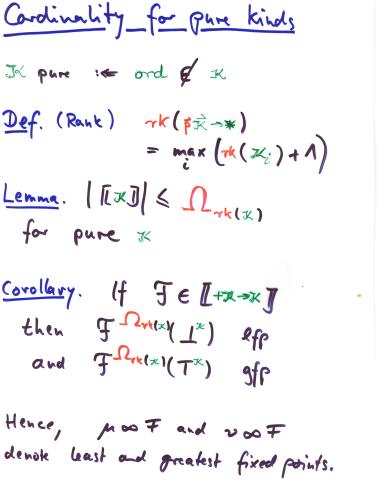 Cardinality for pure kinds
𝒦 pure :⇐ ord ∉ 𝒦
Def. (Rank) rk(p𝒦⃗ → *)
= max_i (rk(𝒦_i) + 1)
Lemma. |⟦𝒦⟧| ≤ Ω_rk(𝒦)
for pure 𝒦
Corollary. If ℱ ∈ ⟦+𝒦→𝒦⟧
then ℱ^Ω_rk(𝒦) (⊥^𝒦) lfp
and ℱ^Ω_rk(𝒦) (⊤^𝒦) gfp
Hence, μ∞ℱ and ν∞ℱ
denote least and greatest fixed points.